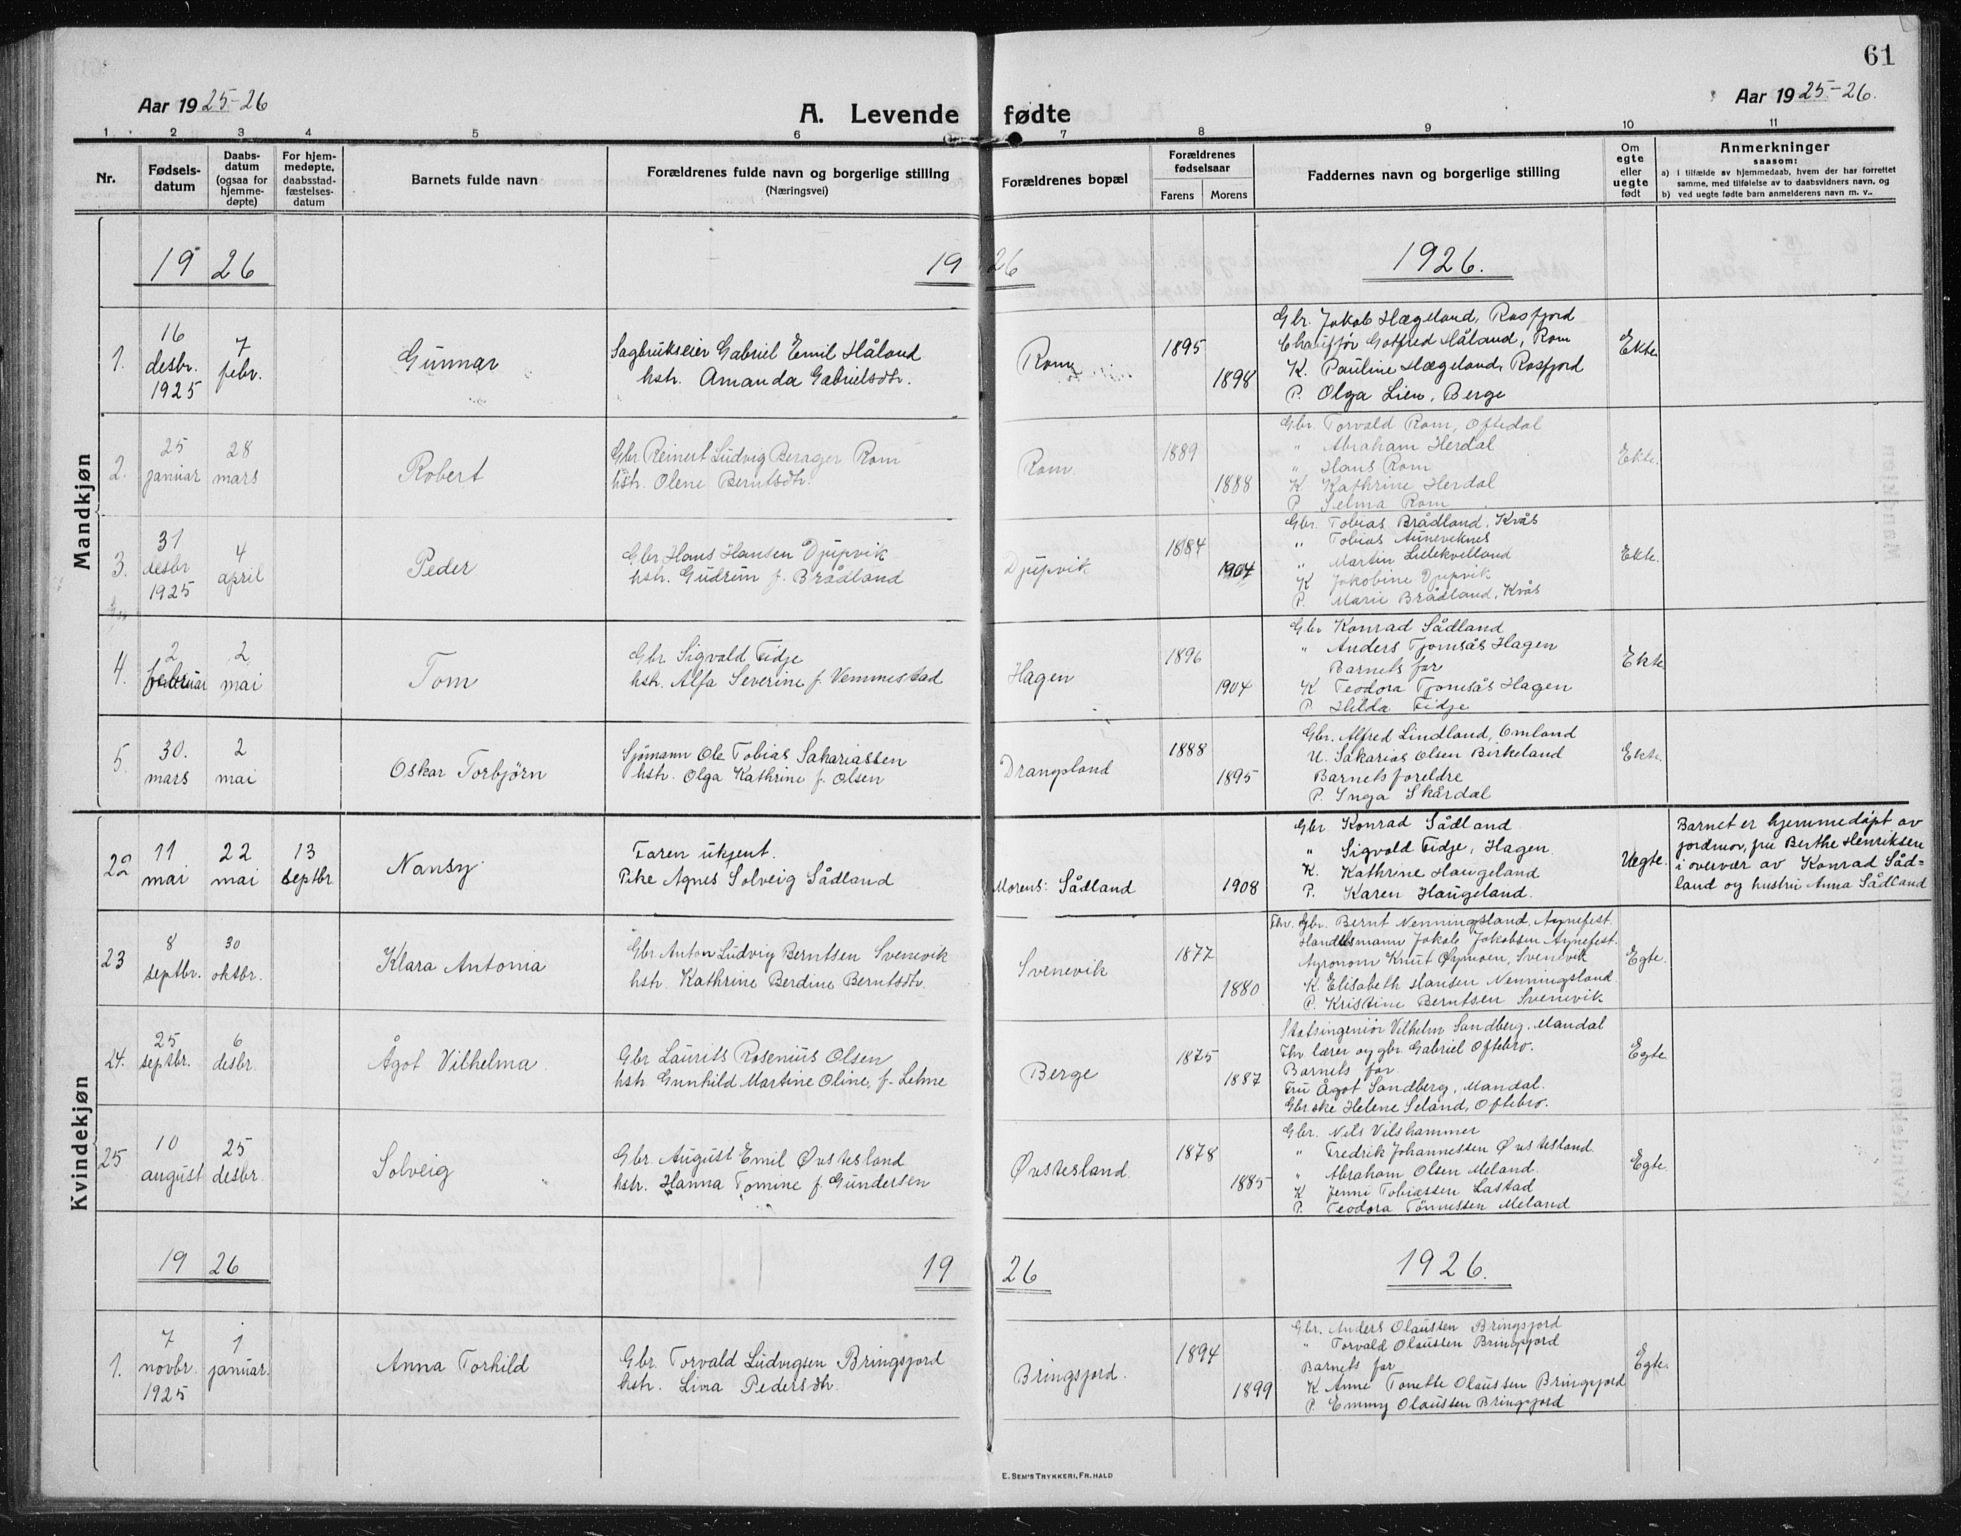 61
Aar 1925-26
A. Levende fødte
Aar 1925-26.
1. 2 3 4 5 6 7 8 9 10 11
Nr.
Fødsels-
datum
Daabs-
datum
(ogsaa for
hjemme-
døpte)
For hjem-
medøpte,
daabsstad-
fæstelses-
datum
Barnets fulde navn
Forældrenes fulde navn og borgerlige stilling
(Næringsvei)
Forældrenes bopæl
Forældrenes
fødselsaar
Farens Morens
Faddernes navn og borgerlige stilling
Om
egte
eller
uegte
født
Anmerkninger
saasom:
a) i tilfælde av hjemmedaab, hvem der har forrettet
samme, med tilføielse av to daabsvidners navn, og
b) ved uegte fødte barn anmelderens navn m. v..
Mandkjøn
1926 1926 1926.
1.
16
desbr.
1925
7
febr.
Gunnar
Sagbrukseier Gabriel Emil Håland
hstr. Amanda Gabrielsdtr.
Rom
1895
1898
Gbr. Jakob Hægeland, Rosfjord
Chauffør Gotfred Håland, Rom
K. Pauline Hægeland, Rosfjord
P. Olga Lien, Berge
Ekte
2.
25
januar
28
mars
Robert
Gbr Reinert Ludvig Berager Rom
hstr. Olene Berntsdtr.
Rom.
1889
1888
Gbr. Torvald Rom, Oftedal
" Abraham Herdal
" Hans Rom
K Kathrine Herdal
P Selma Rom
Ekte.
3.
31
desbr
1925
4
april
Peder
Gbr Hans Hansen Djupvik
hstr. Gudrun f. Brådland
Djupvik
1884
1904
Gbr. Tobias Brådland, Kvås
" Tobias
" Martin Litlekvelland
K Jakobine Djupvik
P. Marie Brådland, Kvås
Ekte.
4.
2
februar
2
mai
Tom
Gbr. Sigvald Eidje
hstr. Alfa Severine f. Vemmestad
Hagen
1896
1904
Gbr Konrad Sådland
" Anders Tjomsås Hagen
Barnets far
K Teodora Tjomsås Hagen
P. Hilda Eidje
Ekte
5.
30.
mars
2
mai
Oskar Torbjørn
Sjømann Ole Tobias Sakariassen
hstr. Olga Kathrine f. Olsen
Drangsland
1888
1895
Gbr. Alfred Lindland, Omland
U. Sakarias Olsen Birkeland
Barnets foreldre
P. Inga Skårdal
Ekte.
Kvindekjøn
22
11
mai
22
mai
13
septbr
Nansy
Faren ukjent.
Pike Agnes Solveig Sådland
Morens: Sådland
1908
Gbr Konrad Sådland
" Sigvald Eidje, Hagen
K. Kathrine Haugeland
P. Karen Haugeland.
Uegte.
Barnet er hjemmedøpt av
jordmor, fru Berthe Henriksen
i overvær av Konrad Såd=
land og hustru Anna Sådland
23
8
septbr.
30
oktbr.
Klara Antonia
Gbr. Anton Ludvig Berntsen Svenevik
hstr. Kathrine Berdine Berntsdtr.
Svenevik
1877
1880
Fhv. Gbr. Bernt Nenningsland, Agnefest.
Handelsmann Jakob Jakobsen Agnefest.
Agronom Knut Øymoen, Svenevik
K. Elisabeth Hansen Nenningsland
P. Kristine Berntsen Svenevik
Egte.
24.
25
septbr.
6
desbr.
Ågot Vilhelma.
Gbr Laurits Rosenius Olsen
hstr. Gunhild Martine Oline, f. Lehne
Berge
1875
1887
Statsingeniør Vilhelm Sandberg, Mandal
Fhv. lærer og gbr. Gabriel Oftebro.
Barnets far
Fru Ågot Sandberg, Mandal.
Gbrske Helene Seland, Oftebro.
Egte
25.
10
august
25
desbr.
Solveig
Gbr. August Emil Øvstesland
hstr. Hanna Tomine f. Gundersen
Øvstesland.
1878
1885
Gbr. Nils Vilshammer
" Fredrik Johannessen Øvstesland
" Abraham Olsen Meland.
K Jenni Tobiassen Lastad
P. Teodora Tønnessen Meland
Egte.
1926 1926 1926.
1.
7
novbr.
1925
1
januar.
Anna Torhild
Gbr. Torvald Ludvigsen Bringsjord
hstr. Lina Pedersdtr.
Bringsjord.
1894
1899
Gbr. Anders Olaussen Bringsjord
" Torvald Olaussen Bringsjord
Barnets far
K Anne Tonette Olaussen Bringsjord
P. Emmy Olaussen Bringsjord
Egte.
E. SEM'S TRYKKERI, FR. HALD